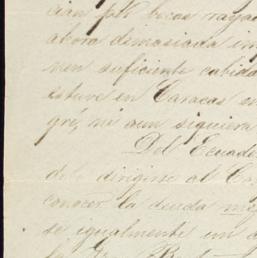 cian por bocas raya
ahora demasiada im
nen suficiente cabida
estuve en Caracas sn
gré, ni aun siquiera
Del Ecuado
debe dirigirse al Co
conocer la deuda
se igualmente un